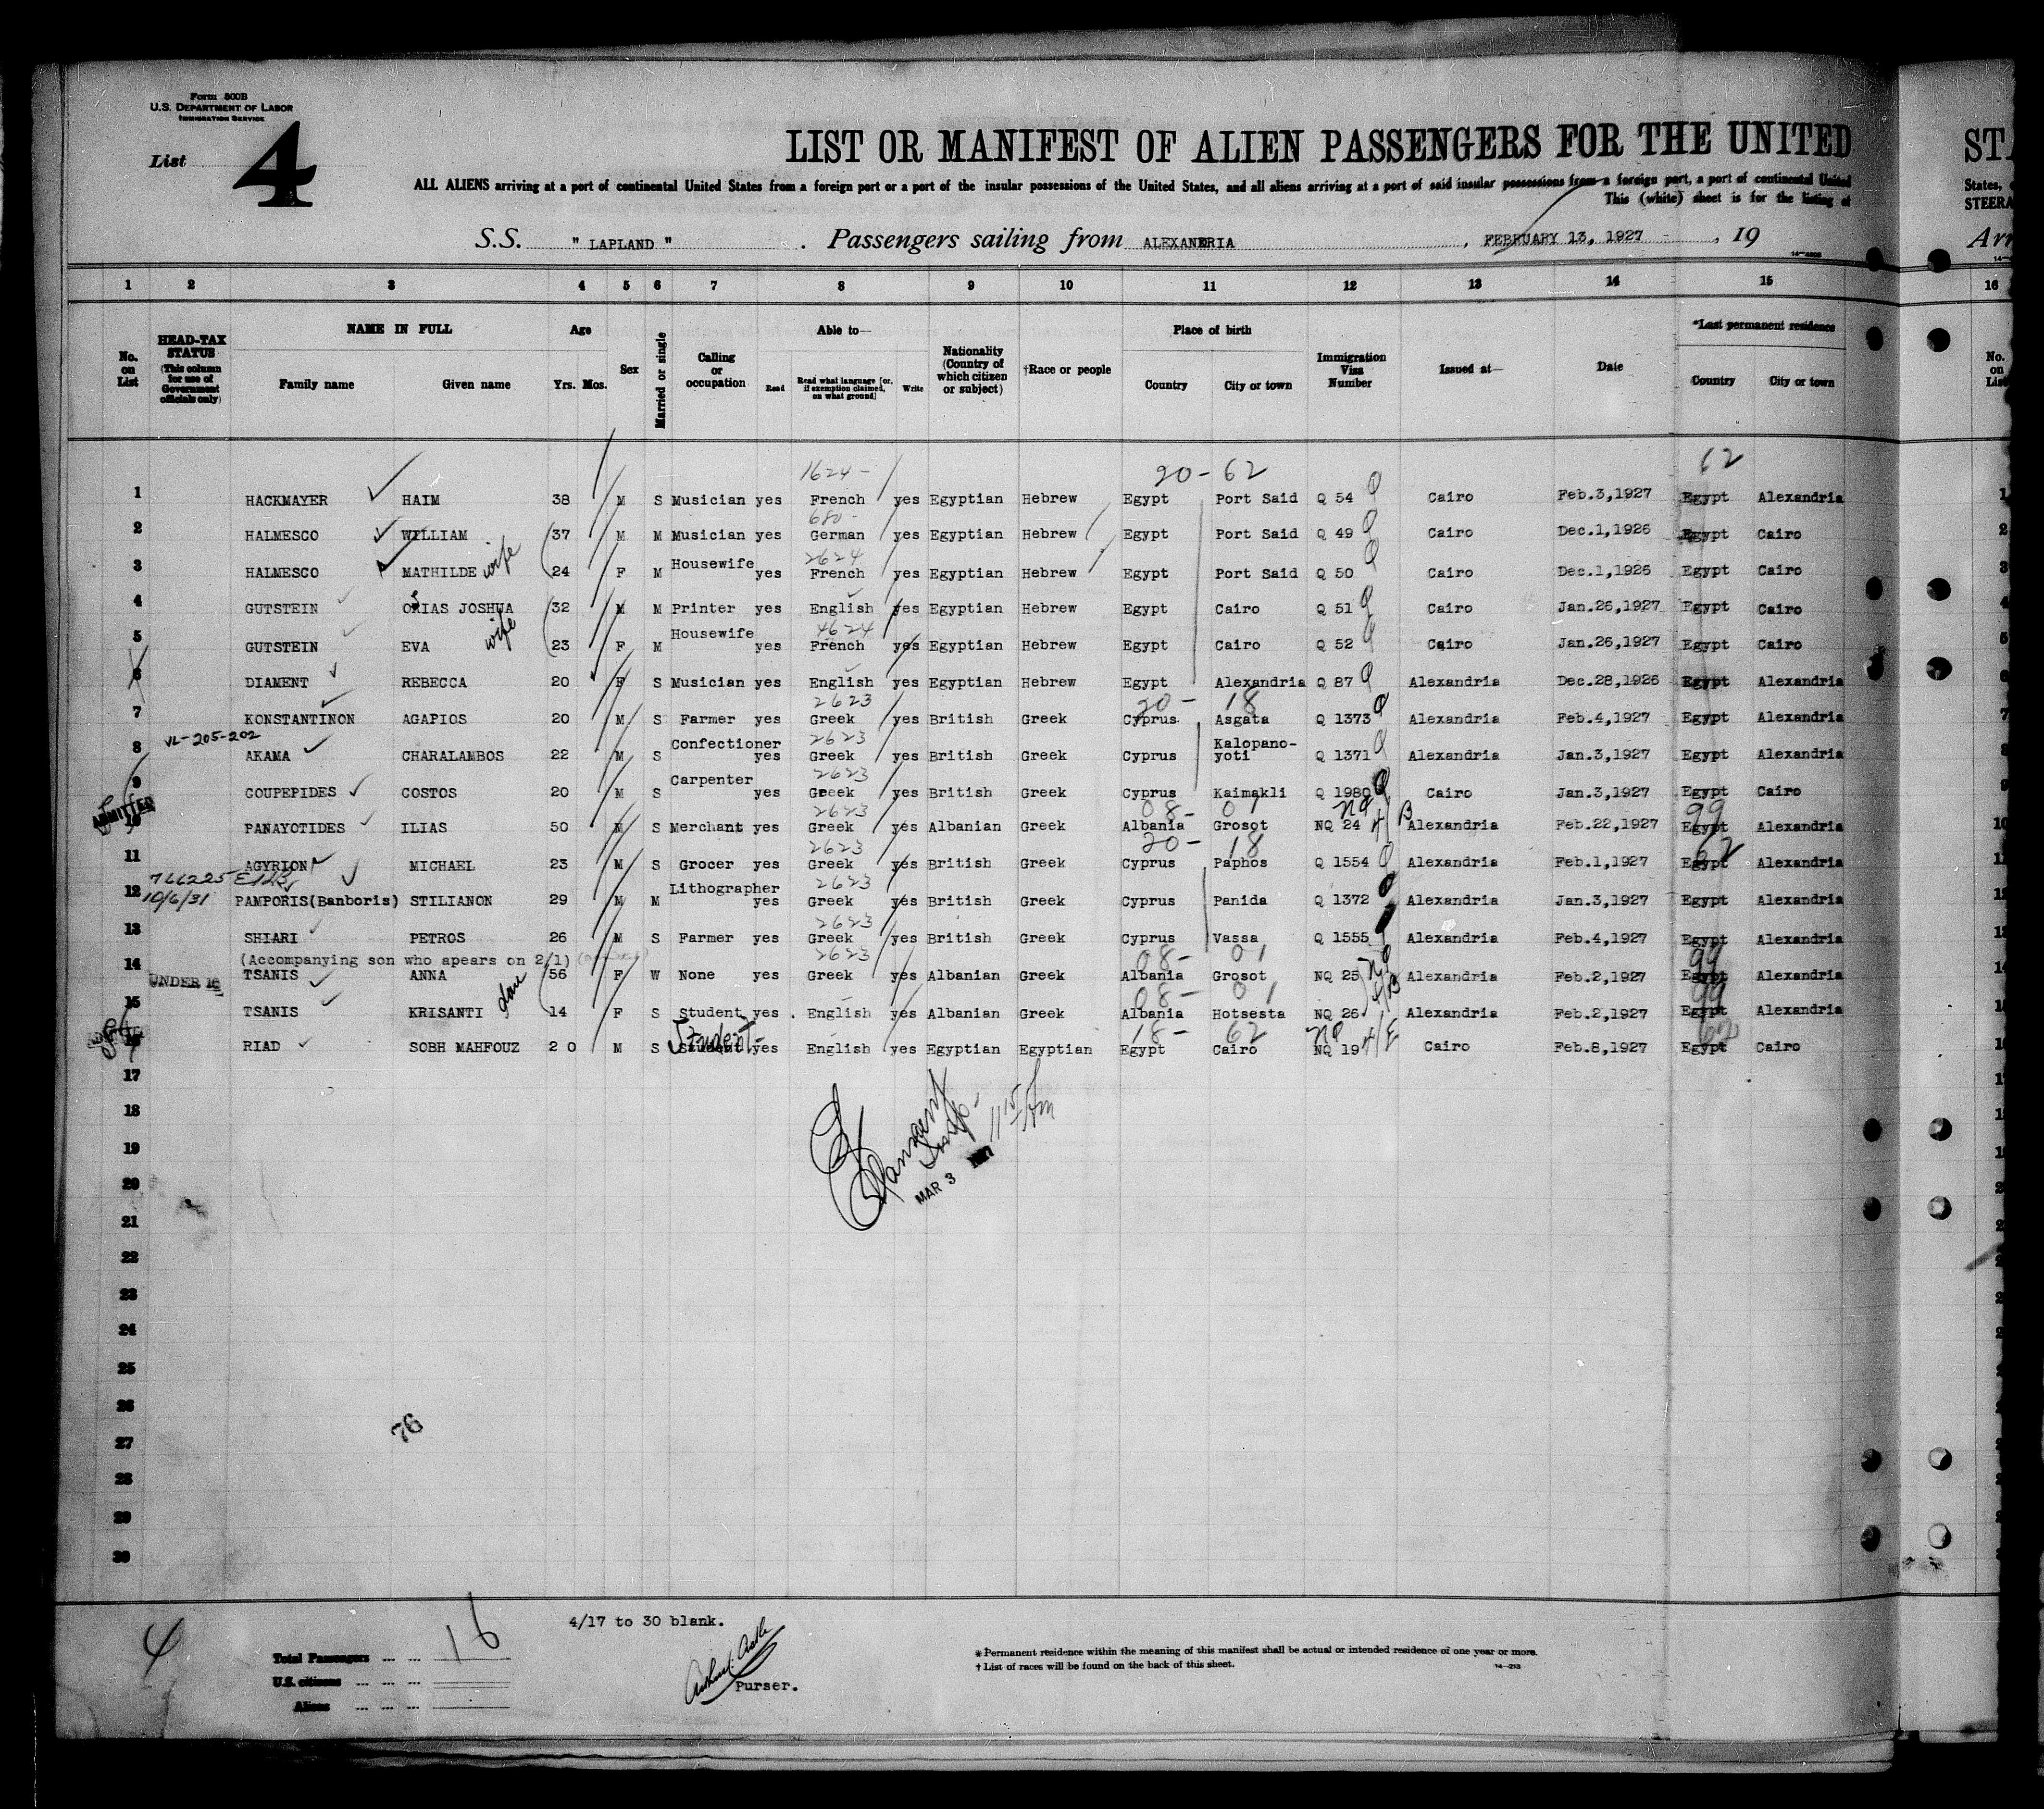 Form 500B
U.S. DEPARTMENT OF LABOR
IMMIGRATION SERVICE
List 4
LIST OR MANIFEST OF ALIEN PASSENGERS FOR THE UNITED STA
ALL ALIENS arriving at a port of continental United States from a foreign port or a port of the insular possessions of the United States, and all aliens arriving at a port of said insular possessions from a foreign port, a port of continental United States,
This (white) sheet is for the listing of STEERA
S.S. " LAPLAND " . Passengers sailing from ALEXANDRIA , FEBRUARY 13, 1927 , 19 Arr
1 2 3 4 5 6 7 8 9 10 11 12 13 14 15 16
No. on List
HEAD-TAX STATUS (This column for use of Government officials only)
NAME IN FULL Family name Given name
Age Yrs. Mos.
Sex
Married or single
Calling or occupation
Able to— Read Read what language [or, if exemption claimed, on what ground] Write
Nationality (Country of which citizen or subject)
†Race or people
Place of birth Country City or town
Immigration Visa Number
Issued at—
Date
*Last permanent residence Country City or town
No. on List
1624 - 20 - 62 62
1 HACKMAYER HAIM 38 M S Musician yes French yes Egyptian Hebrew Egypt Port Said Q 54 Cairo Feb.3,1927 Egypt Alexandria
680 -
2 HALMESCO WILLIAM 37 M M Musician yes German yes Egyptian Hebrew Egypt Port Said Q 49 Cairo Dec.1,1926 Egypt Cairo
2624
3 HALMESCO MATHILDE wife 24 F M Housewife yes French yes Egyptian Hebrew Egypt Port Said Q 50 Cairo Dec.1,1926 Egypt Cairo
4 GUTSTEIN OSIAS JOSHUA 32 M M Printer yes English yes Egyptian Hebrew Egypt Cairo Q 51 Cairo Jan.26,1927 Egypt Cairo
4624
5 GUTSTEIN EVA wife 23 F M Housewife yes French yes Egyptian Hebrew Egypt Cairo Q 52 Cairo Jan.26,1927 Egypt Cairo
6 DIAMENT REBECCA 20 F S Musician yes English yes Egyptian Hebrew Egypt Alexandria Q 87 Alexandria Dec.28,1926 Egypt Alexandria
2623 20 - 18
7 KONSTANTINON AGAPIOS 20 M S Farmer yes Greek yes British Greek Cyprus Asgata Q 1373 Alexandria Feb.4,1927 Egypt Alexandria
VL-205-202 2623
8 AKAMA CHARALAMBOS 22 M S Confectioner yes Greek yes British Greek Cyprus Kalopano-yoti Q 1371 Alexandria Jan.3,1927 Egypt Alexandria
2623
9 COUPEPIDES COSTOS 20 M S Carpenter yes Greek yes British Greek Cyprus Kaimakli Q 1980 Cairo Jan.3,1927 Egypt Cairo
ADMITTED 2623 08 - 01 NQ 4/B 99
10 PANAYOTIDES ILIAS 50 M S Merchant yes Greek yes Albanian Greek Albania Grosot NQ 24 Alexandria Feb.22,1927 Egypt Alexandria
2623 20 - 18 62
11 AGYRION MICHAEL 23 M S Grocer yes Greek yes British Greek Cyprus Paphos Q 1554 Alexandria Feb.1,1927 Egypt Alexandria
10/6/31 2623
12 PAMPORIS(Banboris) STILIANON 29 M M Lithographer yes Greek yes British Greek Cyprus Panida Q 1372 Alexandria Jan.3,1927 Egypt Alexandria
2623
13 SHIARI PETROS 26 M S Farmer yes Greek yes British Greek Cyprus Vassa Q 1555 Alexandria Feb.4,1927 Egypt Alexandria
(Accompanying son who apears on 2/1) 2623 08 - 01 99
14 UNDER 16 TSANIS ANNA 56 F W None yes Greek yes Albanian Greek Albania Grosot NQ 25 Alexandria Feb.2,1927 Egypt Alexandria
08 - 01 4/B 99
15 TSANIS KRISANTI dau 14 F S Student yes English yes Albanian Greek Albania Hotsesta NQ 26 Alexandria Feb.2,1927 Egypt Alexandria
Student 18 - 62 NQ 4/E 62
16 RIAD SOBH MAHFOUZ 2 0 M S Student yes English yes Egyptian Egyptian Egypt Cairo NQ 19 Cairo Feb.8,1927 Egypt Cairo
17
18
19
MAR 3
20
21
22
23
24
25
26
76
27
28
29
30
4
4/17 to 30 blank.
Total Passengers 16
U.S. citizens
Aliens
Purser.
* Permanent residence within the meaning of this manifest shall be actual or intended residence of one year or more.
† List of races will be found on the back of this sheet. 14—213